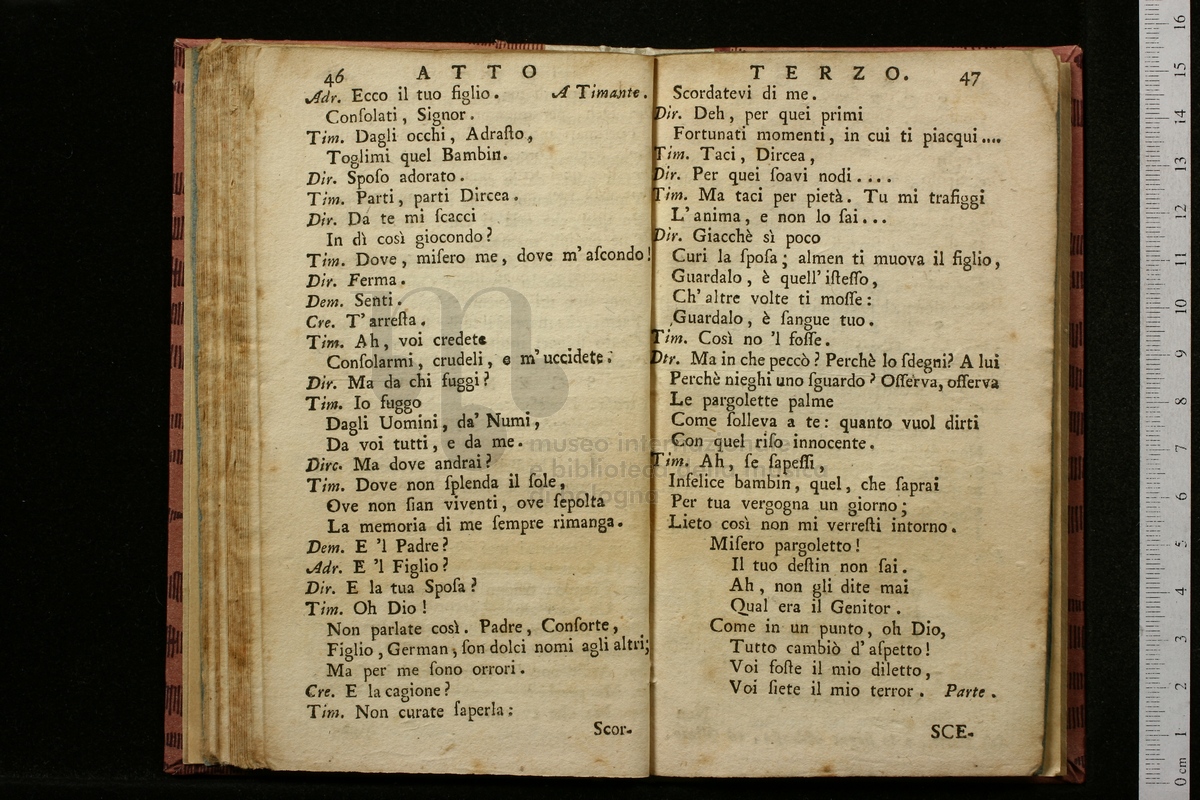 46 ATTO
Adr. Ecco il tuo figlio. A Timante.
Conſolati, Signor.
Tim. Dagli occhi, Adraſto,
Toglimi quel Bambin.
Dir. Spoſo adorato.
Tim. Parti, parti Dircea.
Dir. Da te mi ſcacci
In dì così giocondo?
Tim. Dove, miſero me, dove m'aſcondo!
Dir. Ferma.
Dem. Senti.
Cre. T'arreſta.
Tim. Ah, voi credete
Conſolarmi, crudeli, e m'uccidete.
Dir. Ma da chi fuggi?
Tim. Io fuggo
Dagli Uomini, da' Numi,
Da voi tutti, e da me.
Dirc. Ma dove andrai?
Tim. Dove non ſplenda il ſole,
Ove non ſian viventi, ove ſepolta
La memoria di me ſempre rimanga.
Dem. E 'l Padre?
Adr. E 'l Figlio?
Dir. E la tua Spoſa?
Tim. Oh Dio!
Non parlate così. Padre, Conſorte,
Figlio, German, ſon dolci nomi agli altri;
Ma per me ſono orrori.
Cre. E la cagione?
Tim. Non curate ſaperla:
Scor-
TERZO. 47
Scordatevi di me.
Dir. Deh, per quei primi
Fortunati momenti, in cui ti piacqui....
Tim. Taci, Dircea,
Dir. Per quei ſoavi nodi....
Tim. Ma taci per pietà. Tu mi trafiggi
L'anima, e non lo ſai...
Dir. Giacchè sì poco
Curi la ſpoſa; almen ti muova il figlio,
Guardalo, è quell'iſteſſo,
Ch'altre volte ti moſſe:
Guardalo, è ſangue tuo.
Tim. Così no 'l foſſe.
Dir. Ma in che peccò? Perchè lo ſdegni? A lui
Perchè nieghi uno ſguardo? Oſſerva, oſſerva
Le pargolette palme
Come ſolleva a te: quanto vuol dirti
Con quel riſo innocente.
Tim. Ah, ſe ſapeſſi,
Infelice bambin, quel, che ſaprai
Per tua vergogna un giorno;
Lieto così non mi verreſti intorno.
Miſero pargoletto!
Il tuo deſtin non ſai.
Ah, non gli dite mai
Qual era il Genitor.
Come in un punto, oh Dio,
Tutto cambiò d'aſpetto!
Voi foſte il mio diletto,
Voi ſiete il mio terror. Parte.
SCE-
museo internazionale
e biblioteca della musica
di bologna
0 cm 1 2 3 4 5 6 7 8 9 10 11 12 13 14 15 16